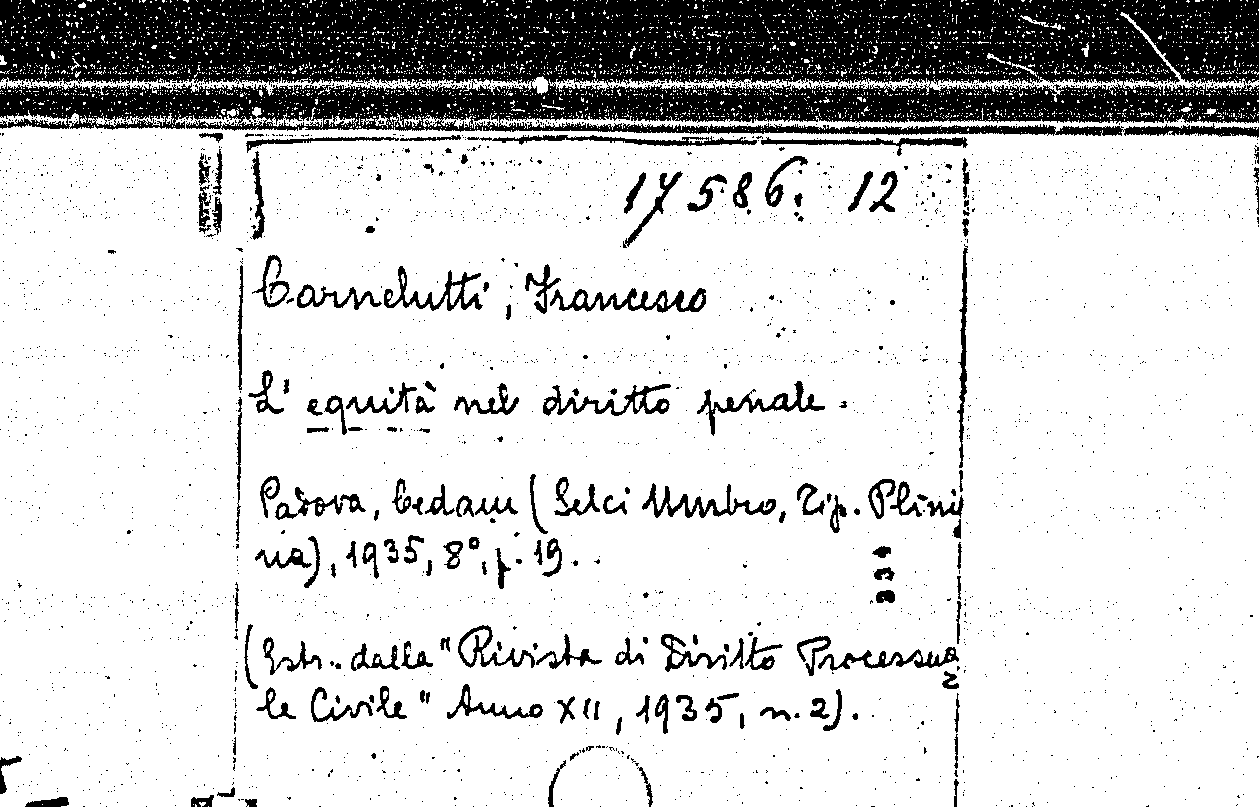 17586. 12
Carnelutti, Francesco
L' equità nel diritto penale.
Padova, Cedam (Selci Umbro, Tip. Plini
na), 1935, 8°, p. 19.
339
(Estr. dalla "Rivista di Diritto Processua
le Civile" Anno XII, 1935, n. 2).